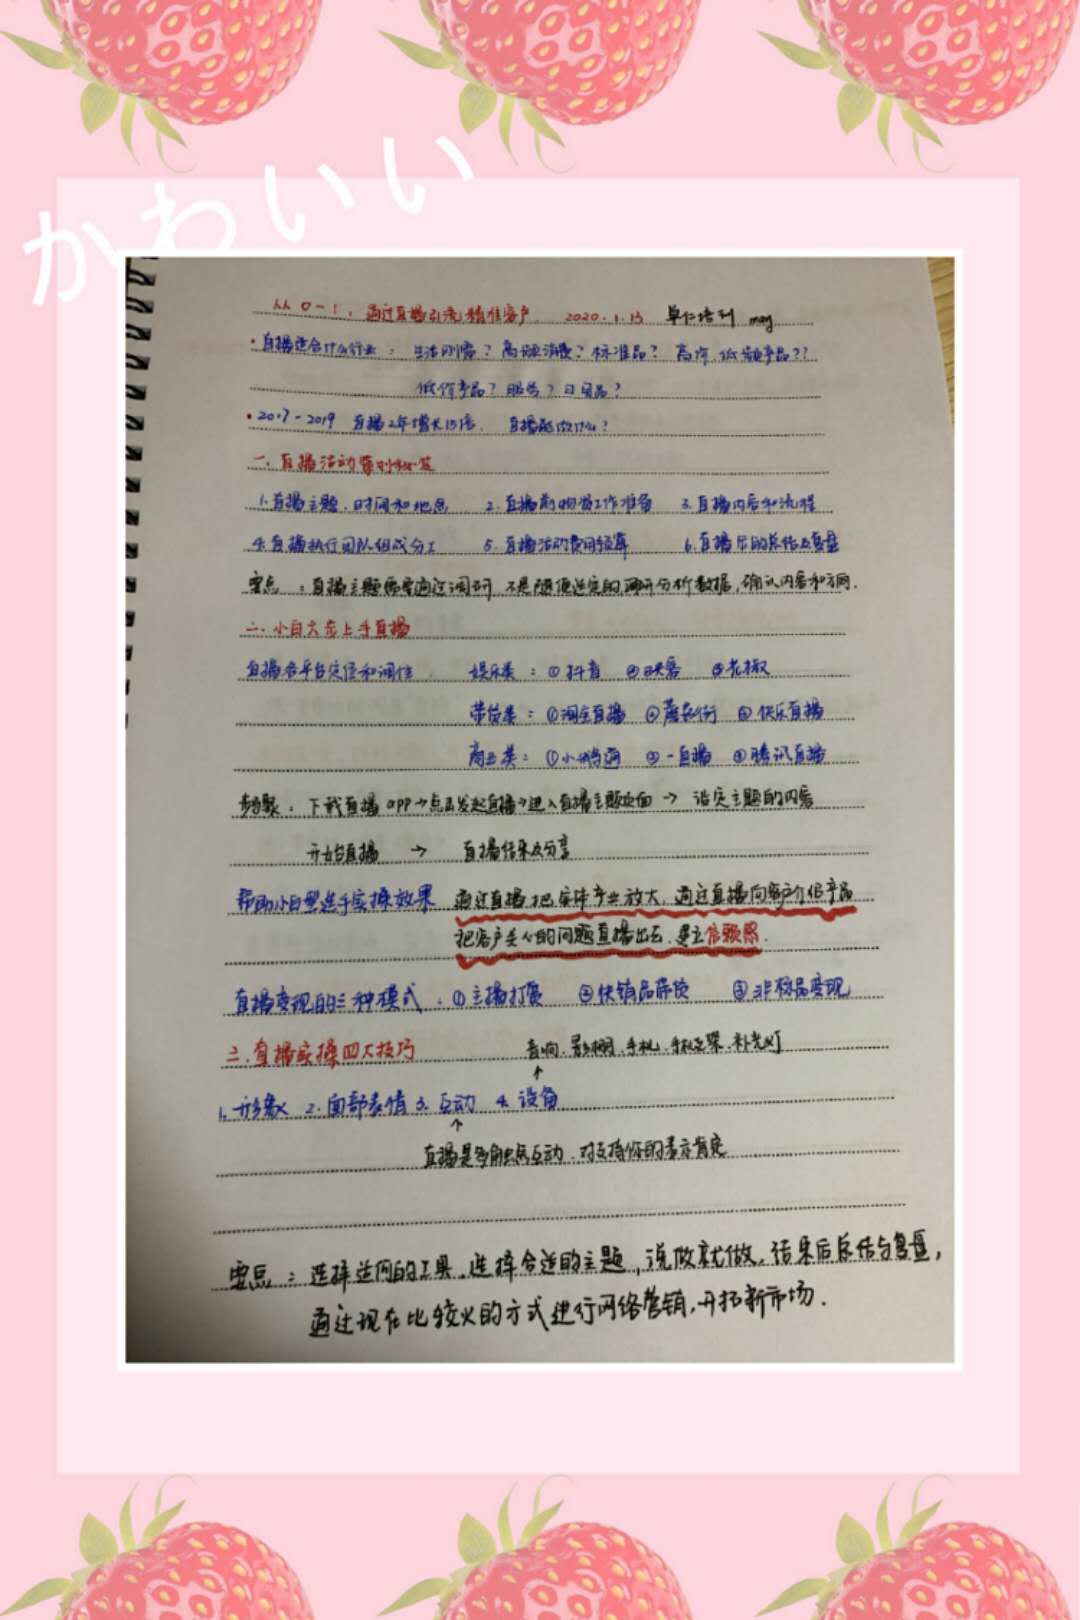 かわいい
从0-1，通过直播引流精准客户 2020.1.13 单仁培训 may
·直播适合什么行业：生活刚需？高频消费？标准品？高价、低频产品??
低价产品？服务？日用品？
·2017-2019 直播2年增长15倍. 直播能做什么？
一、直播活动策划秘笈
1.直播主题、时间和地点 2.直播前的准工作准备 3.直播内容和流程
4.直播执行团队组成分工 5.直播活动费用预算 6.直播后的总结及复盘
要点：直播主题需要通过调研，不是随便选定的，调研分析数据，确认内容和方向.
二、小白六步上手直播
直播各平台定位和调性 娱乐类：①抖音 ②映客 ③花椒
带货类：①淘宝直播 ②蘑菇街 ③快乐直播
商业类：①小鹅通 ②一直播 ③腾讯直播
步骤：下载直播app→点击发起直播→进入直播主题页面→ 设定主题的内容
开始直播 → 直播结束及分享
帮助小白型选手实操效果 通过直播把实体产业放大，通过直播向客户介绍产品
把客户关心的问题直播出去，建立信赖感.
直播变现的三种模式：①主播打赏 ②快销品带货 ③非标品变现
三.直播实操四大技巧 音响、影棚、手机、手机支架、补光灯
↑
1.形象 2.面部表情 3.互动 4.设备
↑
直播是多触点互动，对支持你的表示肯定
要点：选择适网的工具，选择合适的主题，说做就做，结束后总结与复盘，
通过现在比较火的方式进行网络营销，开拓新市场.